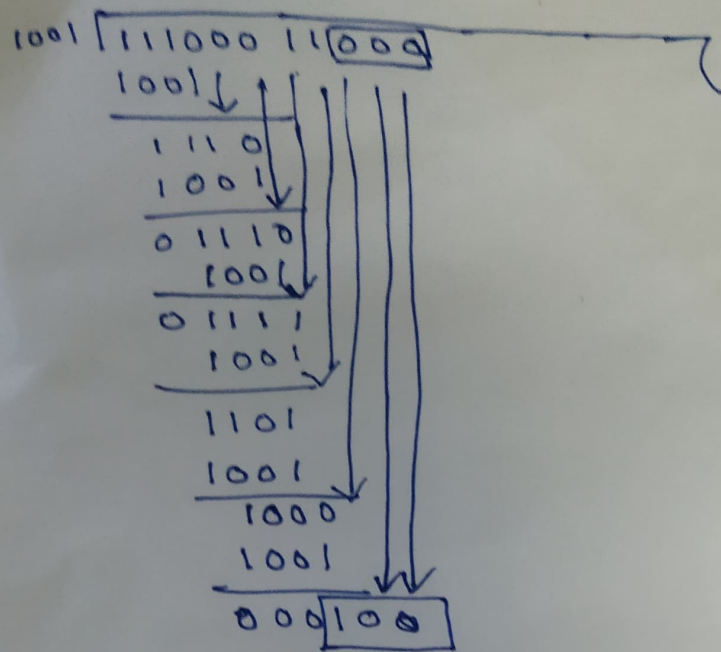 1001 11100011000
1001
1110
1001
01110
1001
01111
1001
1101
1001
1000
1001
000100